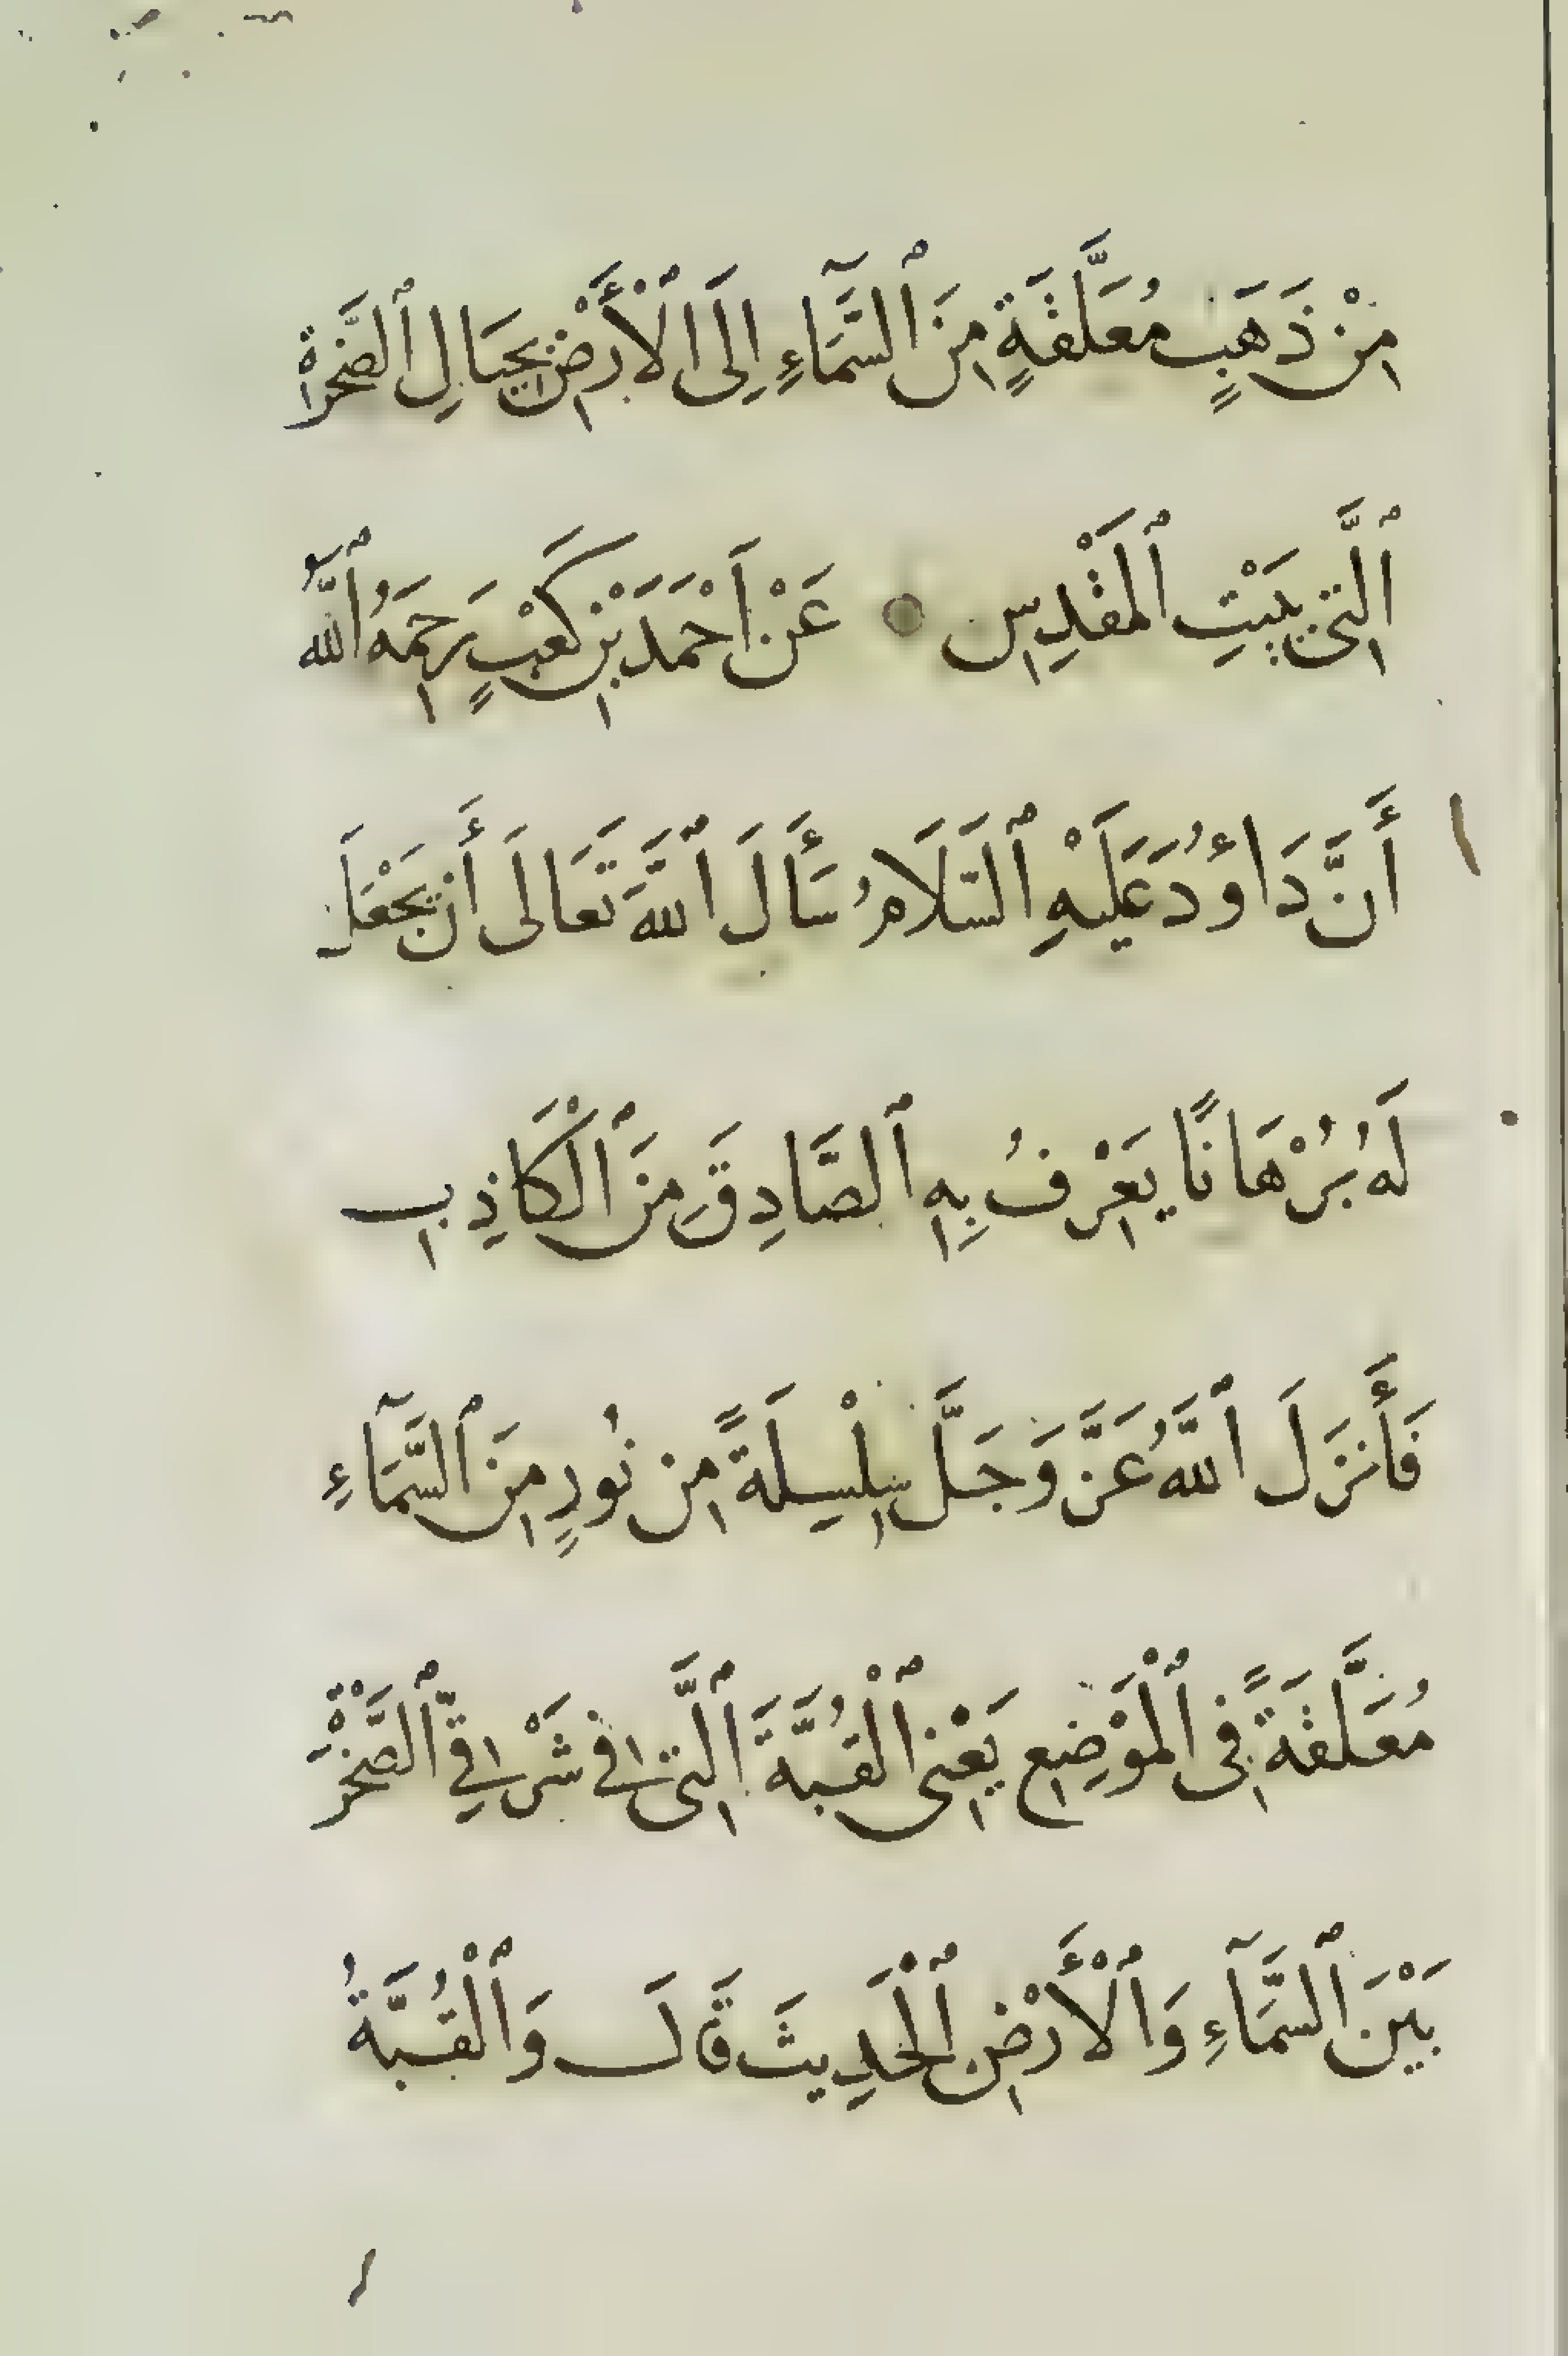 مِنْ ذَهَبٍ مُعَلَّقَةٍ مِنَ ٱلسَّمَآءِ اِلَى الْأَرْضِ بِحِيَالِ ٱلصَّخْرَةِ
ٱلَّتِى بِبَيْتِ ٱلمَقْدِسِ ۞ عَنْ اَحْمَدَ بْنِ كَعْبٍ رَحِمَهُ ٱللّٰه
أَنَّ دَاوٗدَ عَلَيْهِ ٱلسَّلَامُ سَأَلَ ٱللَّهَ تَعَالَى أَنْ يَجْعَلَ
لَهُ بُرْهَانًا يَعْرِفُ بِهِ ٱلصَّادِقَ مِنَ ٱلْكَاذِبِ
فَأَنزَلَ ٱللَّهُ عَزَّ وَجَلَّ سِلْسِلَةً مِن نُورٍ مِنَ ٱلسَّمَآءِ
مُعَلَّقَةً فِى ٱلْمَوْضِعِ يَعْنِى ٱلْقُبَّةَ ٱلَّتِى فِى شَرْقِيِّ ٱلصَّخْرَةِ
بَيْنَ ٱلسَّمَآءِ وَٱلْأَرْضِ ٱلْحَدِيثَ قَالَ وَٱلْقُبَّةُ